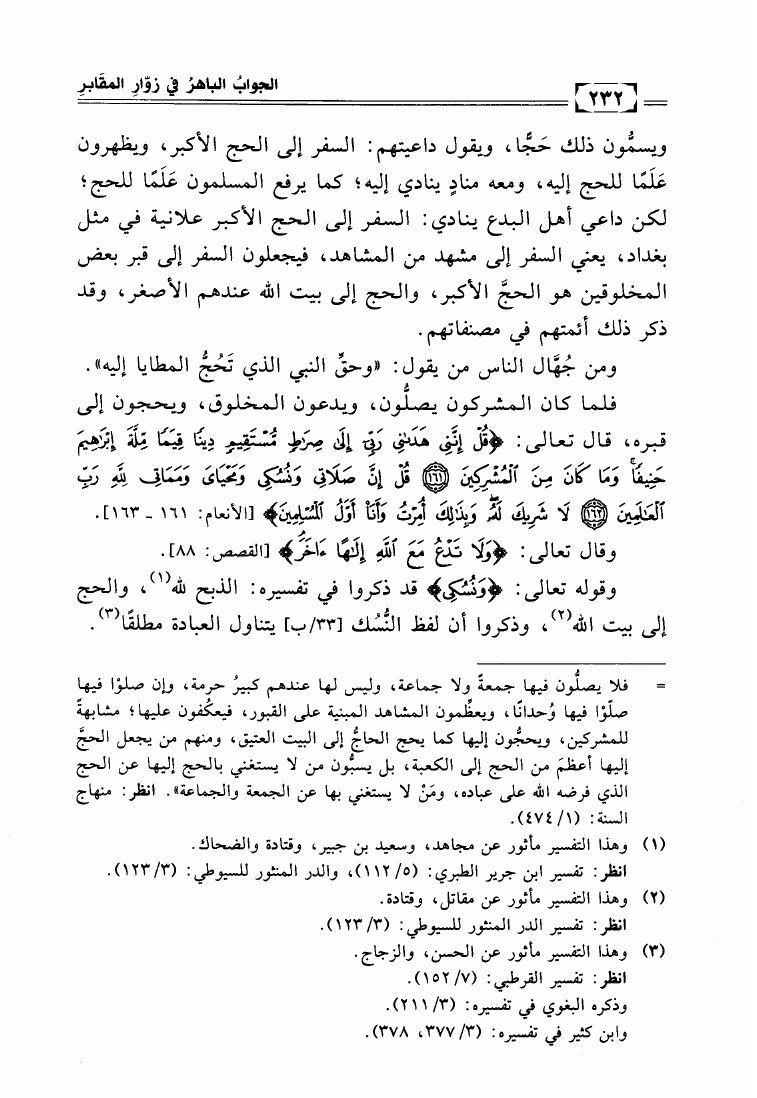 الجوابُ الباهرُ في زوّارِ المقَابرِ
٢٣٢
ويسمُّون ذلك حَجًّا، ويقول داعيتهم: السفر إلى الحج الأكبر، ويظهرون
عَلَمًا للحج إليه، ومعه منادٍ ينادي إليه؛ كما يرفع المسلمون عَلَمًا للحج؛
لكن داعي أهل البدع ينادي: السفر إلى الحج الأكبر علانية في مثل
بغداد، يعني السفر إلى مشهد من المشاهد، فيجعلون السفر إلى قبر بعض
المخلوقين هو الحجَّ الأكبر، والحج إلى بيت الله عندهم الأصغر، وقد
ذكر ذلك أئمتهم في مصنفاتهم.
ومن جُهَّال الناس من يقول: «وحقِّ النبي الذي تَحُجُّ المطايا إليه».
فلما كان المشركون يصلُّون، ويدعون المخلوق، ويحجون إلى
قبره، قال تعالى: ﴿قُلْ إِنَّنِي هَدَىٰنِي رَبِّيٓ إِلَىٰ صِرَٰطٍ مُّسْتَقِيمٍ دِينًا قِيَمًا مِّلَّةَ إِبْرَٰهِيمَ
حَنِيفًا ۚ وَمَا كَانَ مِنَ ٱلْمُشْرِكِينَ ۝١٦١ قُلْ إِنَّ صَلَاتِي وَنُسُكِي وَمَحْيَايَ وَمَمَاتِي لِلَّهِ رَبِّ
ٱلْعَٰلَمِينَ ۝١٦٢ لَا شَرِيكَ لَهُۥ ۖ وَبِذَٰلِكَ أُمِرْتُ وَأَنَا۠ أَوَّلُ ٱلْمُسْلِمِينَ﴾ [الأنعام: ١٦١ ـ ١٦٣].
وقال تعالى: ﴿وَلَا تَدْعُ مَعَ ٱللَّهِ إِلَٰهًا ءَاخَرَ ۘ﴾ [القصص: ٨٨].
وقوله تعالى: ﴿وَنُسُكِي﴾ قد ذكروا في تفسيره: الذبح لله(١)، والحج
إلى بيت الله(٢)، وذكروا أن لفظ النُّسُك [٣٣/ب] يتناول العبادة مطلقًا(٣).
= فلا يصلُّون فيها جمعةً ولا جماعة، وليس لها عندهم كبيرُ حرمة، وإن صلوْا فيها
صلّوْا فيها وُحدانًا، ويعظِّمون المشاهد المبنية على القبور، فيعكُفون عليها؛ مشابهةً
للمشركين، ويحجُّون إليها كما يحج الحاجُّ إلى البيت العتيق، ومنهم من يجعل الحجَّ
إليها أعظمَ من الحج إلى الكعبة، بل يسبُّون من لا يستغني بالحج إليها عن الحج
الذي فرضه الله على عباده، ومَنْ لا يستغني بها عن الجمعة والجماعة». انظر: منهاج
السنة: (١/ ٤٧٤).
(١) وهذا التفسير مأثور عن مجاهد، وسعيد بن جبير، وقتادة والضحاك.
انظر: تفسير ابن جرير الطبري: (٥/ ١١٢)، والدر المنثور للسيوطي: (٣/ ١٢٣).
(٢) وهذا التفسير مأثور عن مقاتل، وقتادة.
انظر: تفسير الدر المنثور للسيوطي: (٣/ ١٢٣).
(٣) وهذا التفسير مأثور عن الحسن، والزجاج.
انظر: تفسير القرطبي: (٧/ ١٥٢).
وذكره البغوي في تفسيره: (٣/ ٢١١).
وابن كثير في تفسيره: (٣/ ٣٧٧، ٣٧٨).